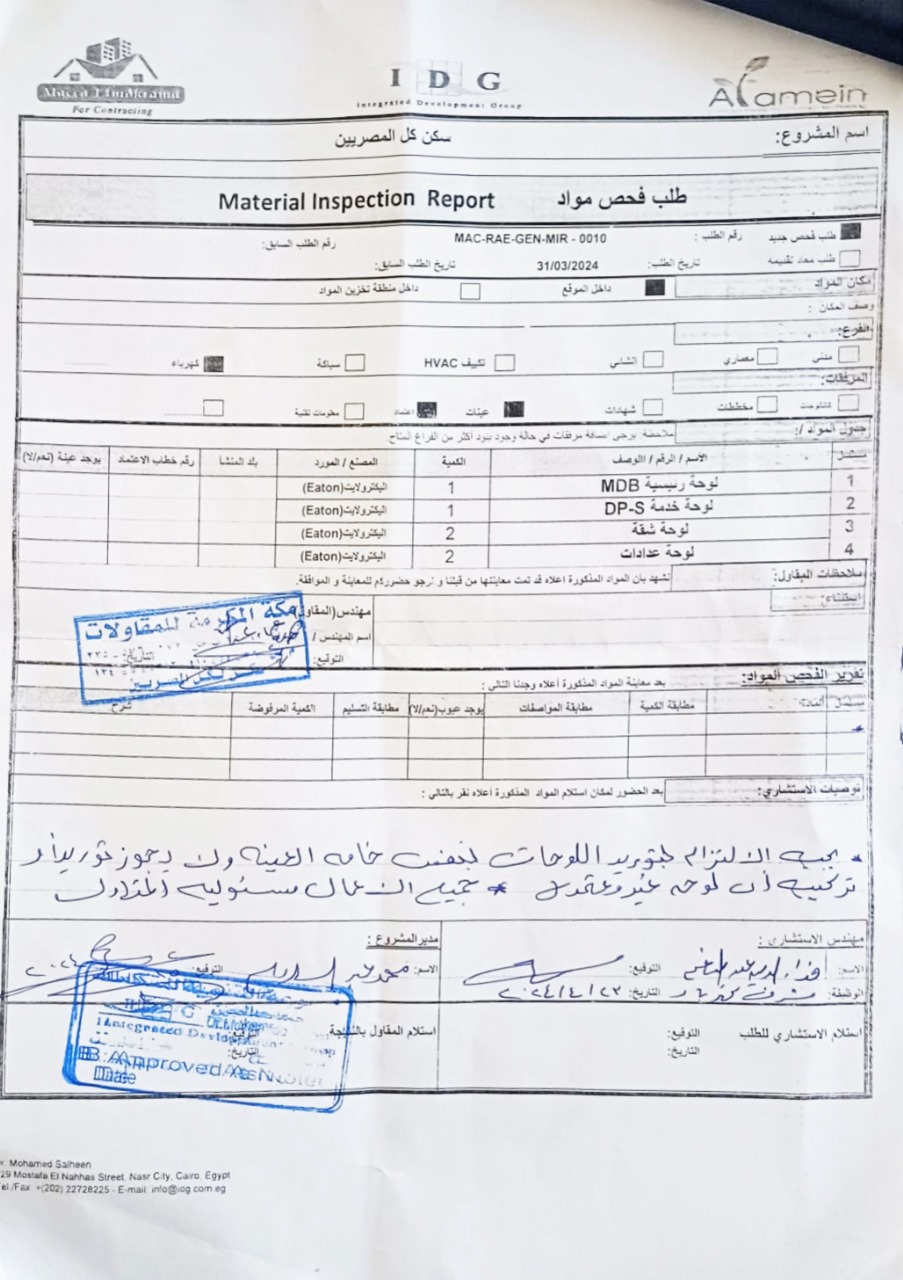 For Contracting
I D G
Integrated Development Group
Alamein
اسم المشروع:
سكن كل المصريين
Material Inspection Report
طلب فحص مواد
طلب فحص جديد
رقم الطلب :
MAC-RAE-GEN-MIR - 0010
رقم الطلب السابق:
طلب معاد تقديمه
تاريخ الطلب:
31/03/2024
تاريخ الطلب السابق:
مكان المواد
داخل الموقع
داخل منطقة تخزين المواد
وصف المكان :
الفرع:
مدني
معماري
انشائي
تكييف HVAC
سباكة
كهرباء
المرفقات:
كتالوجات
مخططات
شهادات
عينات
اعتماد
معلومات تقنية
جدول المواد /:
ملاحظة: يرجى إضافة مرفقات في حالة وجود بنود أكثر من الفراغ المتاح
مسلسل
الاسم / الرقم / الوصف
الكمية
المصنع / المورد
بلد المنشا
رقم خطاب الاعتماد
يوجد عينة (نعم/لا)
1 لوحة رئيسية MDB 1 اليكترولايت(Eaton)
2 لوحة خدمة DP-S 1 اليكترولايت(Eaton)
3 لوحة شقة 2 اليكترولايت(Eaton)
4 لوحة عدادات 2 اليكترولايت(Eaton)
ملاحظات المقاول:
نشهد بأن المواد المذكورة اعلاه قد تمت معاينتها من قبلنا و نرجو حضوركم للمعاينة و الموافقة.
استثناء:
مهندس(المقاول)
اسم المهندس /
التوقيع:
مكة المكرمة للمقاولات
التاريخ:
تقرير الفحص المواد:
بعد معاينة المواد المذكورة أعلاه وجدنا التالي :
مسلسل
المادة
مطابقة الكمية
مطابقة المواصفات
يوجد عيوب(نعم/لا)
مطابقة التسليم
الكمية المرفوضة
شرح
توصيات الاستشاري:
بعد الحضور لمكان استلام المواد المذكورة أعلاه نقر بالتالي :
* يجب الالتزام بتوريد اللوحات بنفس خامه العينه ولا يجوز توريد أو
تركيب أى لوحه غير * جميع الاعمال مسئوليه المقاول
مهندس الاستشاري :
مدير المشروع :
الاسم:
التوقيع:
الاسم: محمد
التوقيع:
الوظيفة:
التاريخ: ٢٠٢٤/٤/٢٣
استلام الاستشاري للطلب
التوقيع:
التاريخ:
استلام المقاول بالنتيجة
التوقيع:
التاريخ:
Integrated Development Group
B Approved As Noted
Date
Mohamed Salheen
29 Mostafa El Nahhas Street, Nasr City, Cairo, Egypt
Tel./Fax: +(202) 22728225 - E-mail: info@idg.com.eg